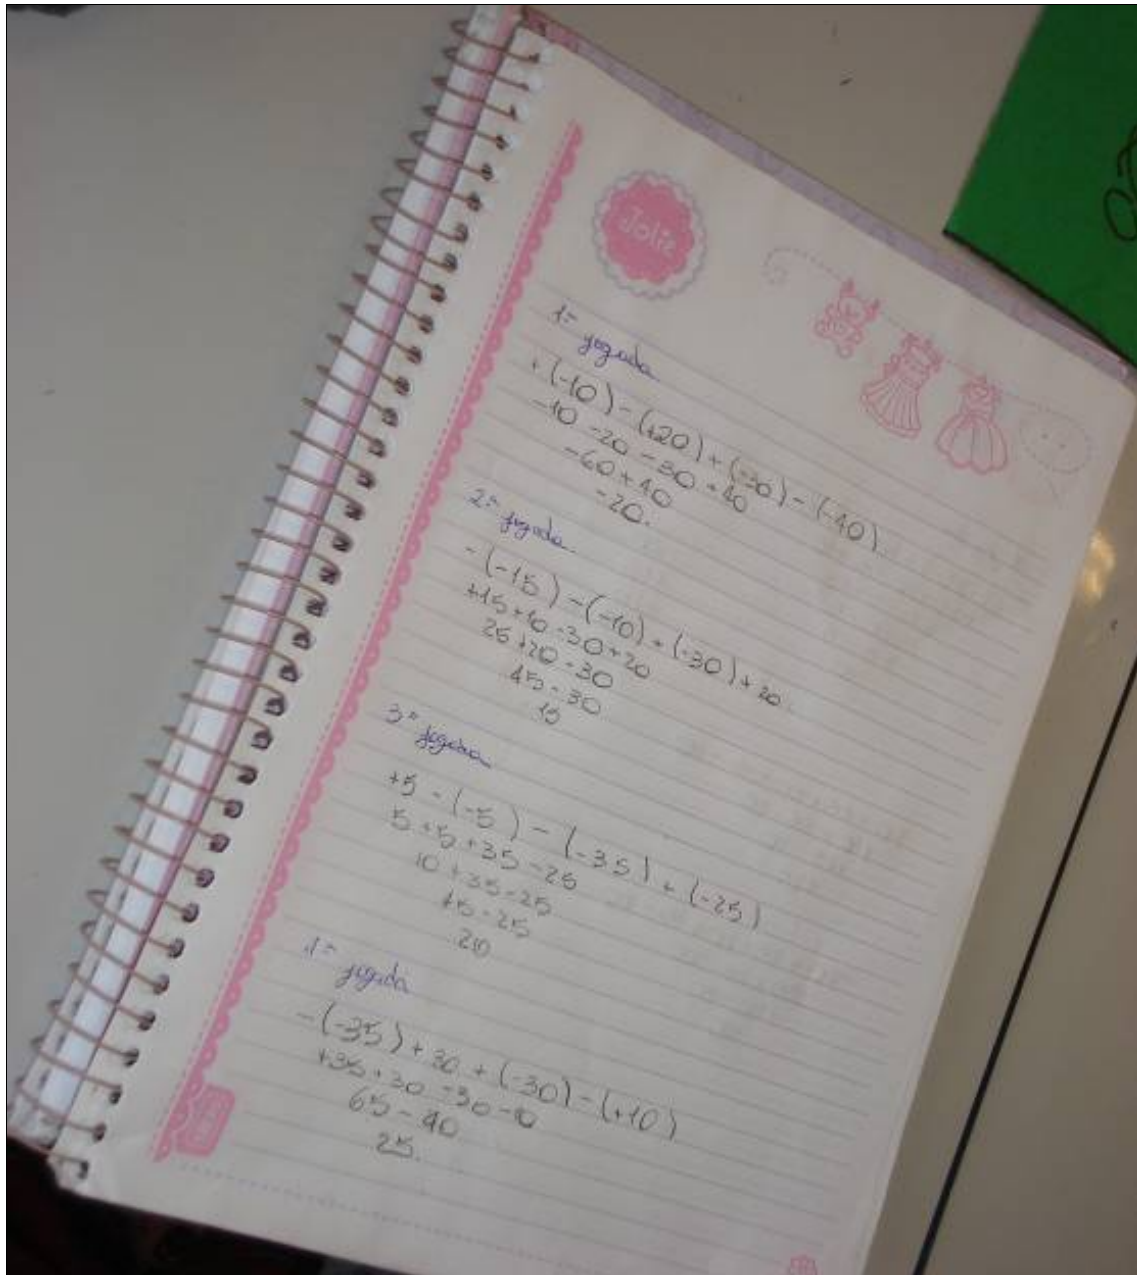 Jolie
1ª
jogada
+ (-10) - (+20) + (-30) - (-40)
-10 -20 - 30 + 40
-60 + 40
-20.
2ª
jogada.
- (-15) - (-10) + (-30) + 20.
+15 + 10 - 30 + 20
25 + 20 - 30
45 - 30
15
3ª
jogada
+5 - (-5) - (-35) + (-25)
5 + 5 + 35 - 25
10 + 35 - 25
45 - 25
20
jogada
- (-35) + 30 + (-30) - (+10)
+35 + 30 - 30 - 10
65 - 40
25.